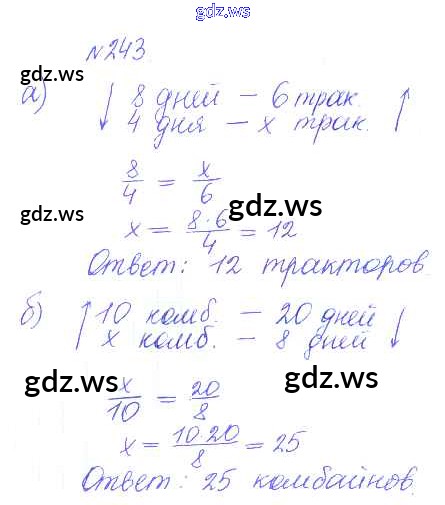 gdz.ws
№243.
gdz.ws gdz.ws
а) ↓ 8 дней – 6 трак. ↑
4 дня – x трак.
8/4 = x/6
gdz.ws gdz.ws
x = 8·6/4 = 12
Ответ: 12 тракторов.
б) ↑ 10 комб. – 20 дней ↓
x комб. – 8 дней
gdz.ws gdz.ws
x/10 = 20/8
x = 10·20/8 = 25
Ответ: 25 комбайнов.
gdz.ws